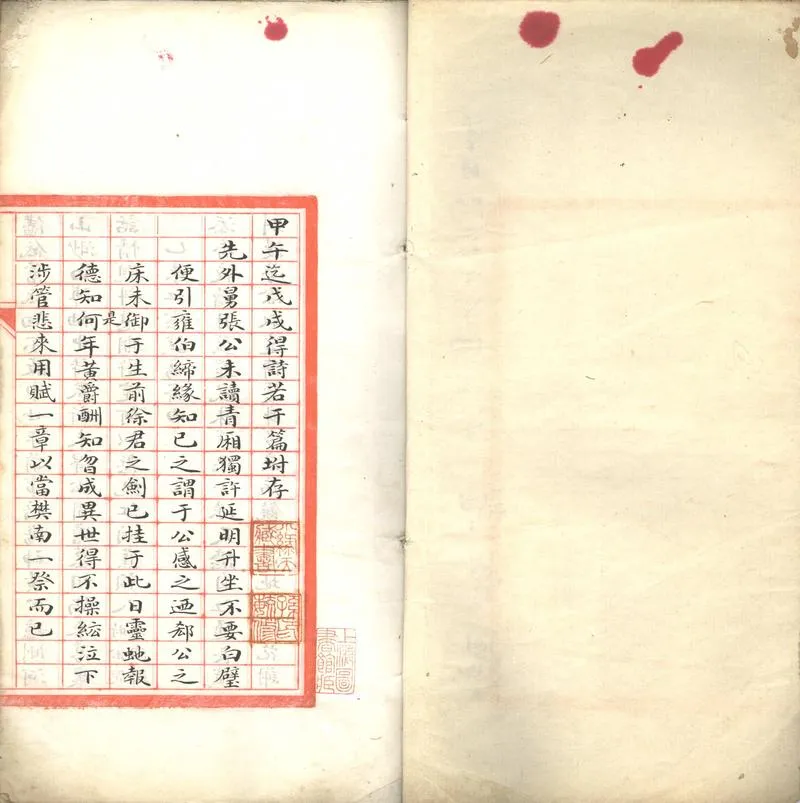 甲午迄戊戌得詩若干篇坿存
先外舅張公未讀青廂獨許延明升坐不要白璧
便引雍伯締緣知己之謂于公感之迺郄公之
床未御于生前徐君之劍已挂于此日靈虵報
是
德知何年黃爵酬知曶成異世得不操紭泣下
涉管悲來用賦一章以當樊南一祭而已
上海圖書館藏